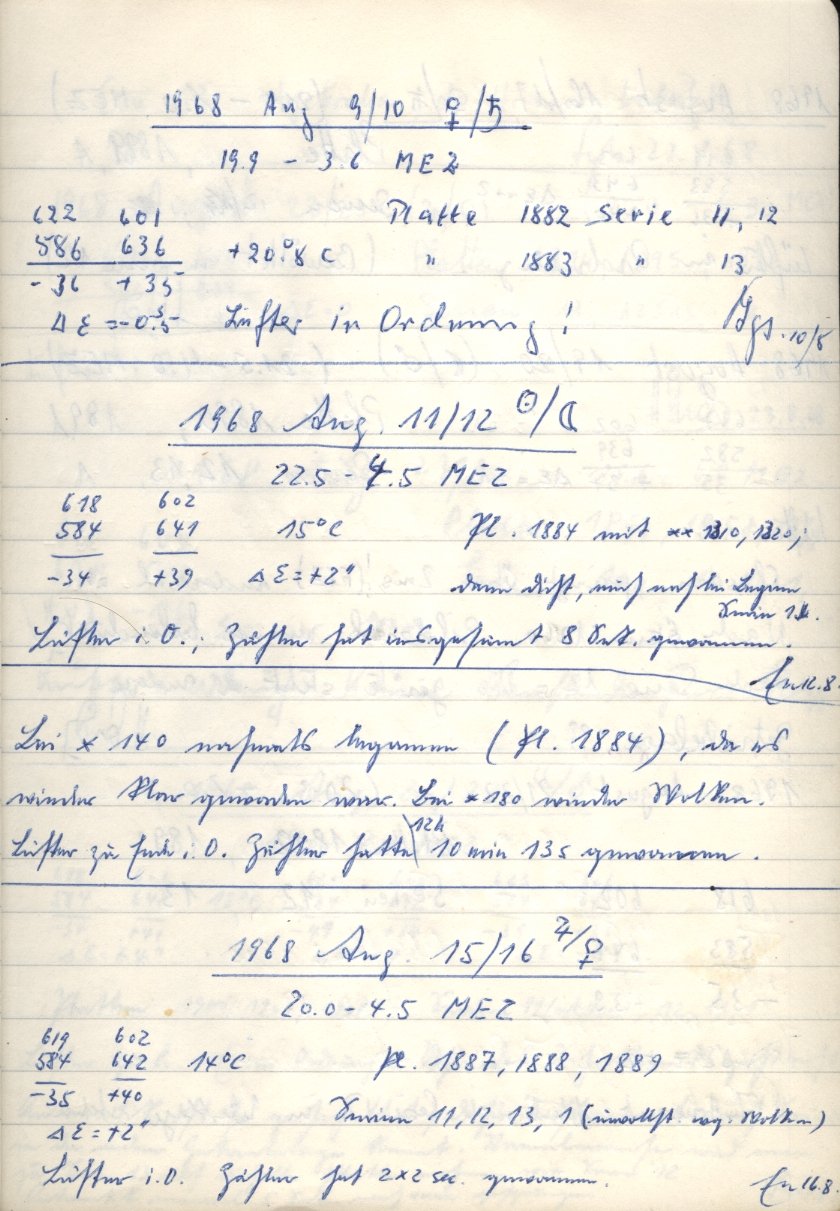 1968 Aug 9/10 ♀/♄
19.9 – 3.6 MEZ
622 601 Platte 1882 Serie 11, 12
586 636 +20°.8 C " 1883 " 13
-36 +35
Δ Ɛ = -0.5 Lüfter in Ordnung! 10/8
1968 Aug. 11/12 ☉/☾
22.5 – 4.5 MEZ
618 602
584 641 15°C Pl. 1884 mit ** 1310, 1320;
-34 +39 Δ Ɛ = +2" dann dicht, auch nach bei Beginn
Serien 12.
Lüfter i. O.; Zähler hat insgesamt 8 Sek. gewonnen.
En 12.8.
Bei * 140 nochmals begonnen (Pl. 1884), da es
wieder klar geworden war. Bei * 180 wieder Wolken.
Lüfter zu Ende i. O. Zähler hatte 12h 10 min 13s gewonnen.
1968 Aug. 15/16 ♃/♀
20.0 – 4.5 MEZ
619 602
584 642 14°C Pl. 1887, 1888, 1889
-35 +40
Serien 11, 12, 13, 1 (unvollst. wg. Wolken)
Δ Ɛ = +2"
Lüfter i. O. Zähler hat 2x2 sec. gewonnen. En 16.8.